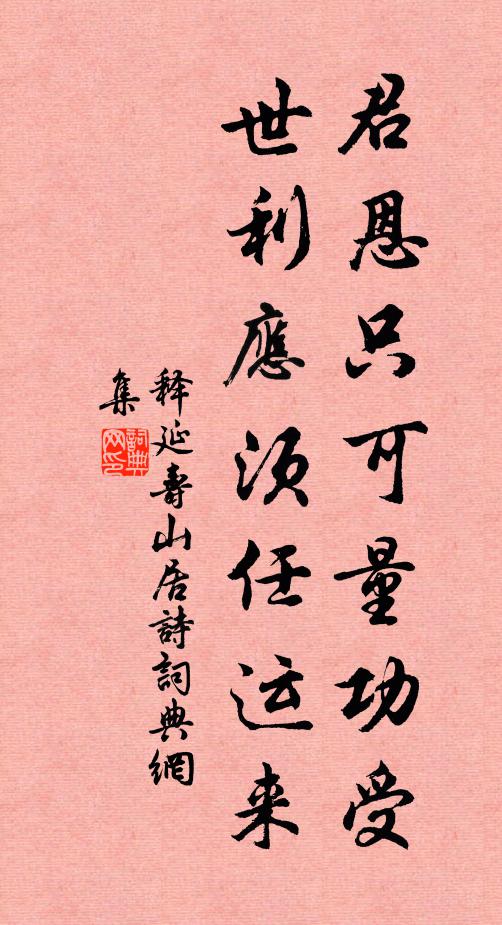 君恩只可量功受
世利應須任运来
释延壽山居詩詞典網
集
詞典网印